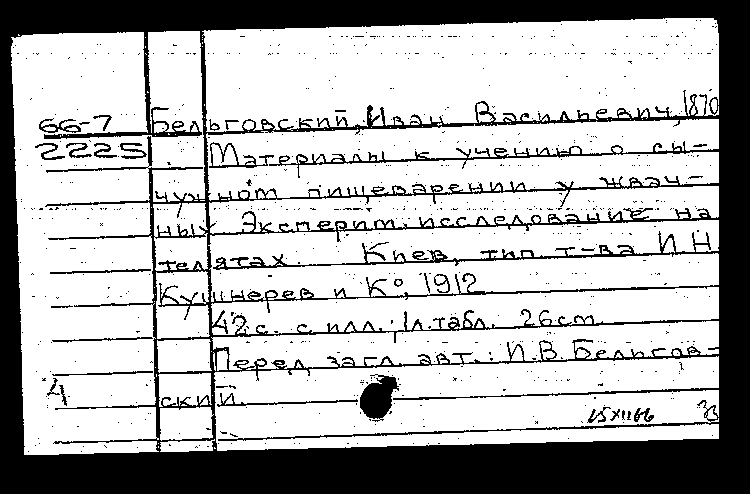 66-7 Бельговский, Иван Васильевич, 1870
2225 Материалы к учению о сы-
чужном пищеварении у жвач-
ных Эксперит. исследование на
телятах. Киев, тип. т-ва И.Н.
Кушнерев и К°, 1912
42 с. с илл.; 1 л. табл. 26 cm.
Перед загл. авт.: И.В. Бельгов-
4 ский.
15 XII 66